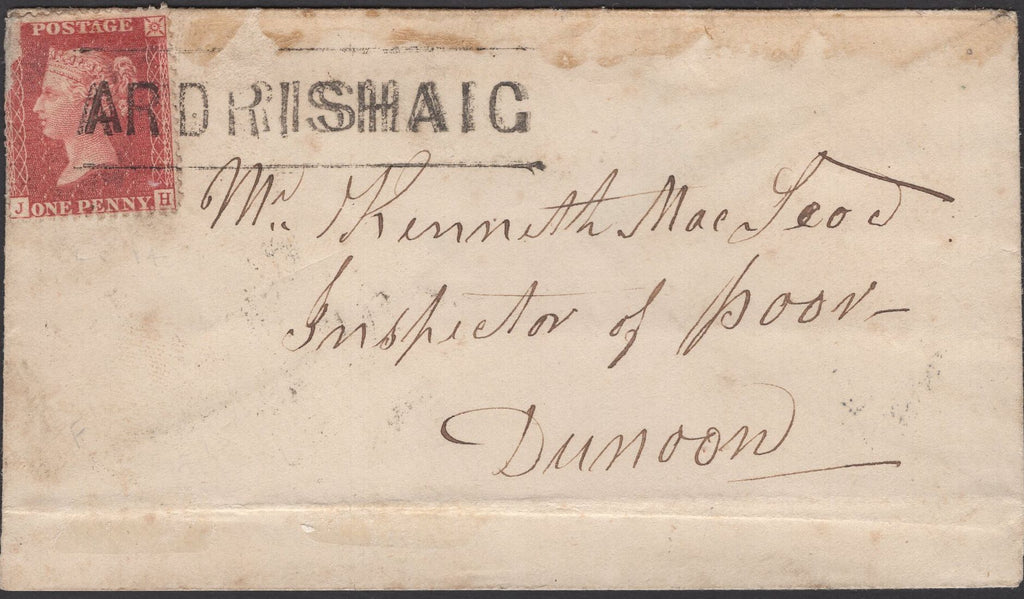 POSTAGE
ARDRISHAIG
J ONE PENNY H
Mr. Kenneth MacLeod
Inspector of poor
Dunoon